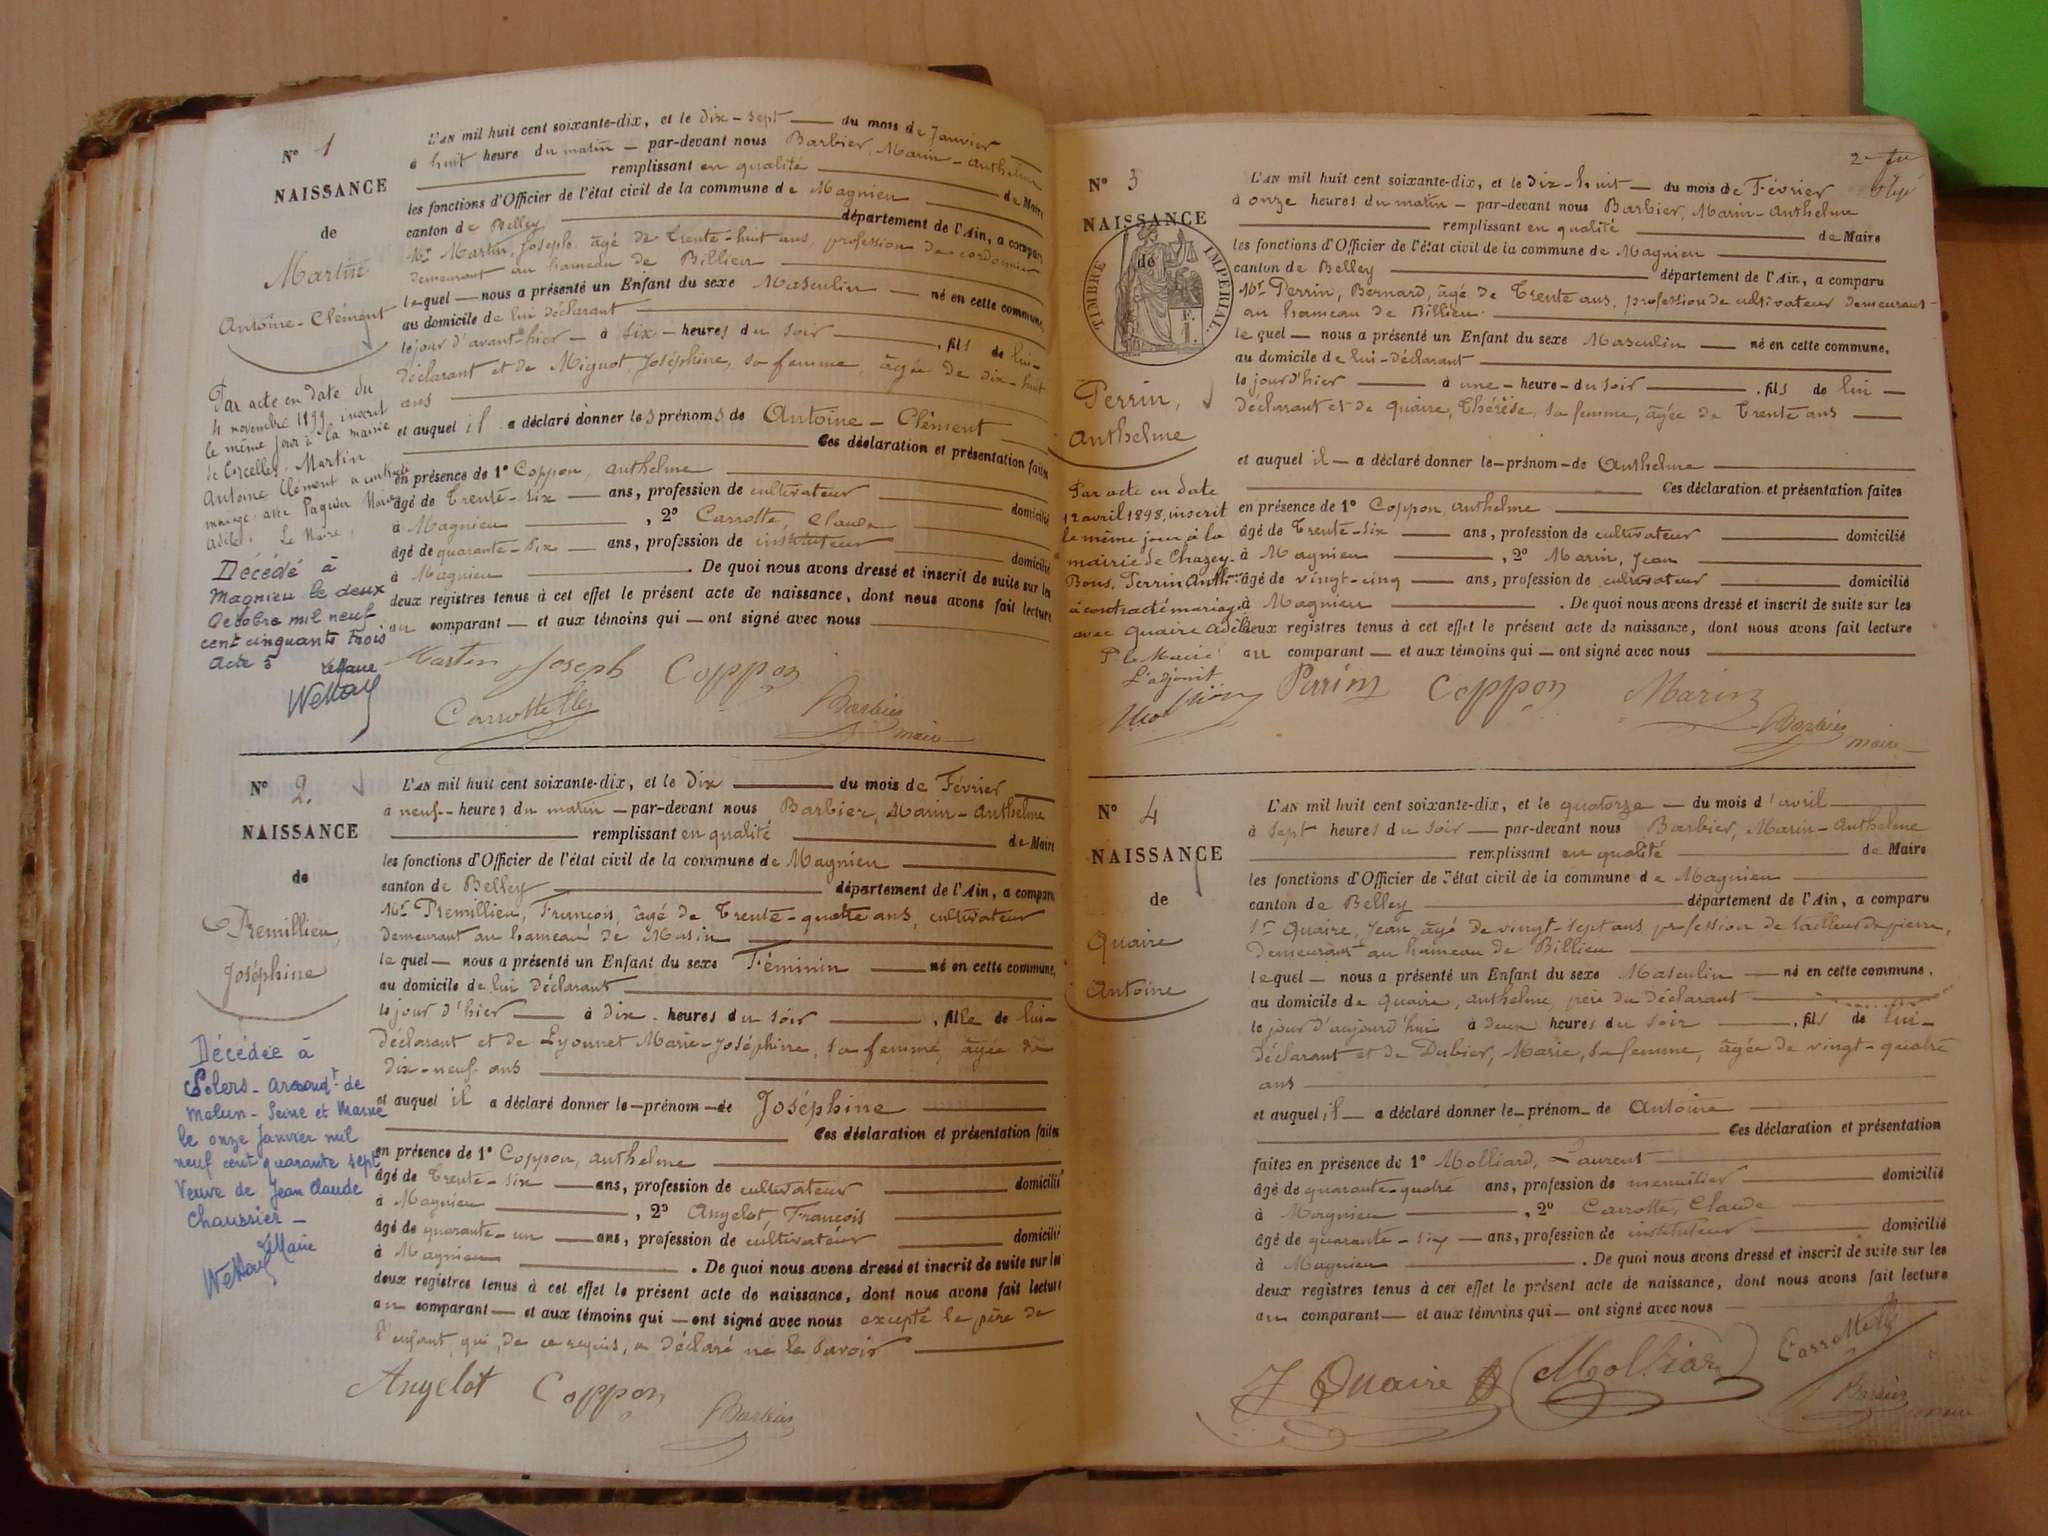 N° 1
NAISSANCE
de
Martin
Antoine-Clément
Par acte en date du
4 novembre 1899, inscrit
le même jour à la mairie
de Corcelles, Martin
Antoine Clément a contracté
mariage avec Paquier
Adèle. Le Maire,
Décédé à
Magnieu le deux
Octobre mil neuf
cent cinquante trois
Acte 3
Le Maire
L'AN mil huit cent soixante-dix, et le dix-sept du mois de Janvier
à huit heure du matin par-devant nous Barbier, Marin-Anthelme
remplissant en qualité de Maire
les fonctions d'Officier de l'état civil de la commune de Magnieu
canton de Belley département de l'Ain, a comparu
Mr Martin, Joseph, âgé de trente-huit ans, profession de cordonnier
demeurant au hameau de Billieu
lequel nous a présenté un Enfant du sexe Masculin né en cette commune,
au domicile de lui déclarant
le jour d'avant-hier à six heures du soir, fils de lui-
déclarant et de Mignot, Joséphine, sa femme, âgée de dix-huit
ans
et auquel il a déclaré donner les prénoms de Antoine-Clément
Ces déclaration et présentation faites
en présence de 1° Coppon, anthelme
âgé de trente-six ans, profession de cultivateur domicilié
à Magnieu, 2° Carrotte, Claude
âgé de quarante-six ans, profession de instituteur domicilié
à Magnieu. De quoi nous avons dressé et inscrit de suite sur les
deux registres tenus à cet effet le présent acte de naissance, dont nous avons fait lecture
au comparant et aux témoins qui ont signé avec nous
Martin Joseph Coppon
Carrotte Barbier
maire
N° 2.
NAISSANCE
de
Premillieu,
Joséphine
Décédée à
Solers - arrondt de
Melun - Seine et Marne
le onze Janvier mil
neuf cent quarante sept
Veuve de Jean Claude
Chaussier -
Le Maire
L'AN mil huit cent soixante-dix, et le dix du mois de Février
à neuf heures du matin par-devant nous Barbier, Marin-Anthelme
remplissant en qualité de Maire
les fonctions d'Officier de l'état civil de la commune de Magnieu
canton de Belley département de l'Ain, a comparu
Mr Premillieu, François, âgé de trente-quatre ans, cultivateur
demeurant au hameau de Musin
lequel nous a présenté un Enfant du sexe Féminin né en cette commune,
au domicile de lui déclarant
le jour d'hier à dix heures du soir, fille de lui-
déclarant et de Lyonnet Marie-Joséphine, sa femme, âgée de
dix-neuf ans
et auquel il a déclaré donner le prénom de Joséphine
Ces déclaration et présentation faites
en présence de 1° Coppon, anthelme
âgé de trente-six ans, profession de cultivateur domicilié
à Magnieu, 2° Angelot, François
âgé de quarante-un ans, profession de cultivateur domicilié
à Magnieu. De quoi nous avons dressé et inscrit de suite sur les
deux registres tenus à cet effet le présent acte de naissance, dont nous avons fait lecture
au comparant et aux témoins qui ont signé avec nous excepté le père de
l'enfant, qui, de ce requis, a déclaré ne le savoir
Angelot Coppon Barbier
2
N° 3
NAISSANCE
de
TIMBRE IMPERIAL.
Perrin,
Anthelme
Par acte en date
12 avril 1898, inscrit
le même jour à la
mairie de Chazey-
Bons, Perrin Anthme
a contracté mariage
avec Quaire Adèle
Pr le Maire
L'adjoint
L'AN mil huit cent soixante-dix, et le dix-huit du mois de Février
à onze heures du matin par-devant nous Barbier, Marin-Anthelme
remplissant en qualité de Maire
les fonctions d'Officier de l'état civil de la commune de Magnieu
canton de Belley département de l'Ain, a comparu
Mr Perrin, Bernard, âgé de trente ans, profession de cultivateur demeurant
au hameau de Billieu.
lequel nous a présenté un Enfant du sexe Masculin né en cette commune,
au domicile de lui-déclarant
le jour d'hier à une heure du soir, fils de lui
déclarant et de Quaire, Thérèse, sa femme, âgée de trente ans
et auquel il a déclaré donner le prénom de Anthelme
Ces déclaration et présentation faites
en présence de 1° Coppon, anthelme
âgé de trente-six ans, profession de cultivateur domicilié
à Magnieu, 2° Marin, Jean
âgé de vingt-cinq ans, profession de cultivateur domicilié
à Magnieu. De quoi nous avons dressé et inscrit de suite sur les
deux registres tenus à cet effet le présent acte de naissance, dont nous avons fait lecture
au comparant et aux témoins qui ont signé avec nous
Perrin Coppon Marin
Barbier maire
N° 4
NAISSANCE
de
Quaire
Antoine
L'AN mil huit cent soixante-dix, et le quatorze du mois d'avril
à sept heures du soir par-devant nous Barbier, Marin-Anthelme
remplissant en qualité de Maire
les fonctions d'Officier de l'état civil de la commune de Magnieu
canton de Belley département de l'Ain, a comparu
Sr Quaire, Jean, âgé de vingt-sept ans profession de tailleur de pierre,
demeurant au hameau de Billieu
lequel nous a présenté un Enfant du sexe Masculin né en cette commune,
au domicile de Quaire, anthelme, père du déclarant
le jour d'aujourd'hui à deux heures du soir, fils de lui-
déclarant et de Dubier, Marie, sa femme, âgée de vingt-quatre
ans
et auquel il a déclaré donner le prénom de Antoine
Ces déclaration et présentation
faites en présence de 1° Molliard, Laurent
âgé de quarante-quatre ans, profession de menuisier domicilié
à Magnieu, 2° Carrotte, Claude
âgé de quarante-six ans, profession de instituteur domicilié
à Magnieu. De quoi nous avons dressé et inscrit de suite sur les
deux registres tenus à cet effet le présent acte de naissance, dont nous avons fait lecture
au comparant et aux témoins qui ont signé avec nous
J Quaire Molliard Carrotte
Barbier maire